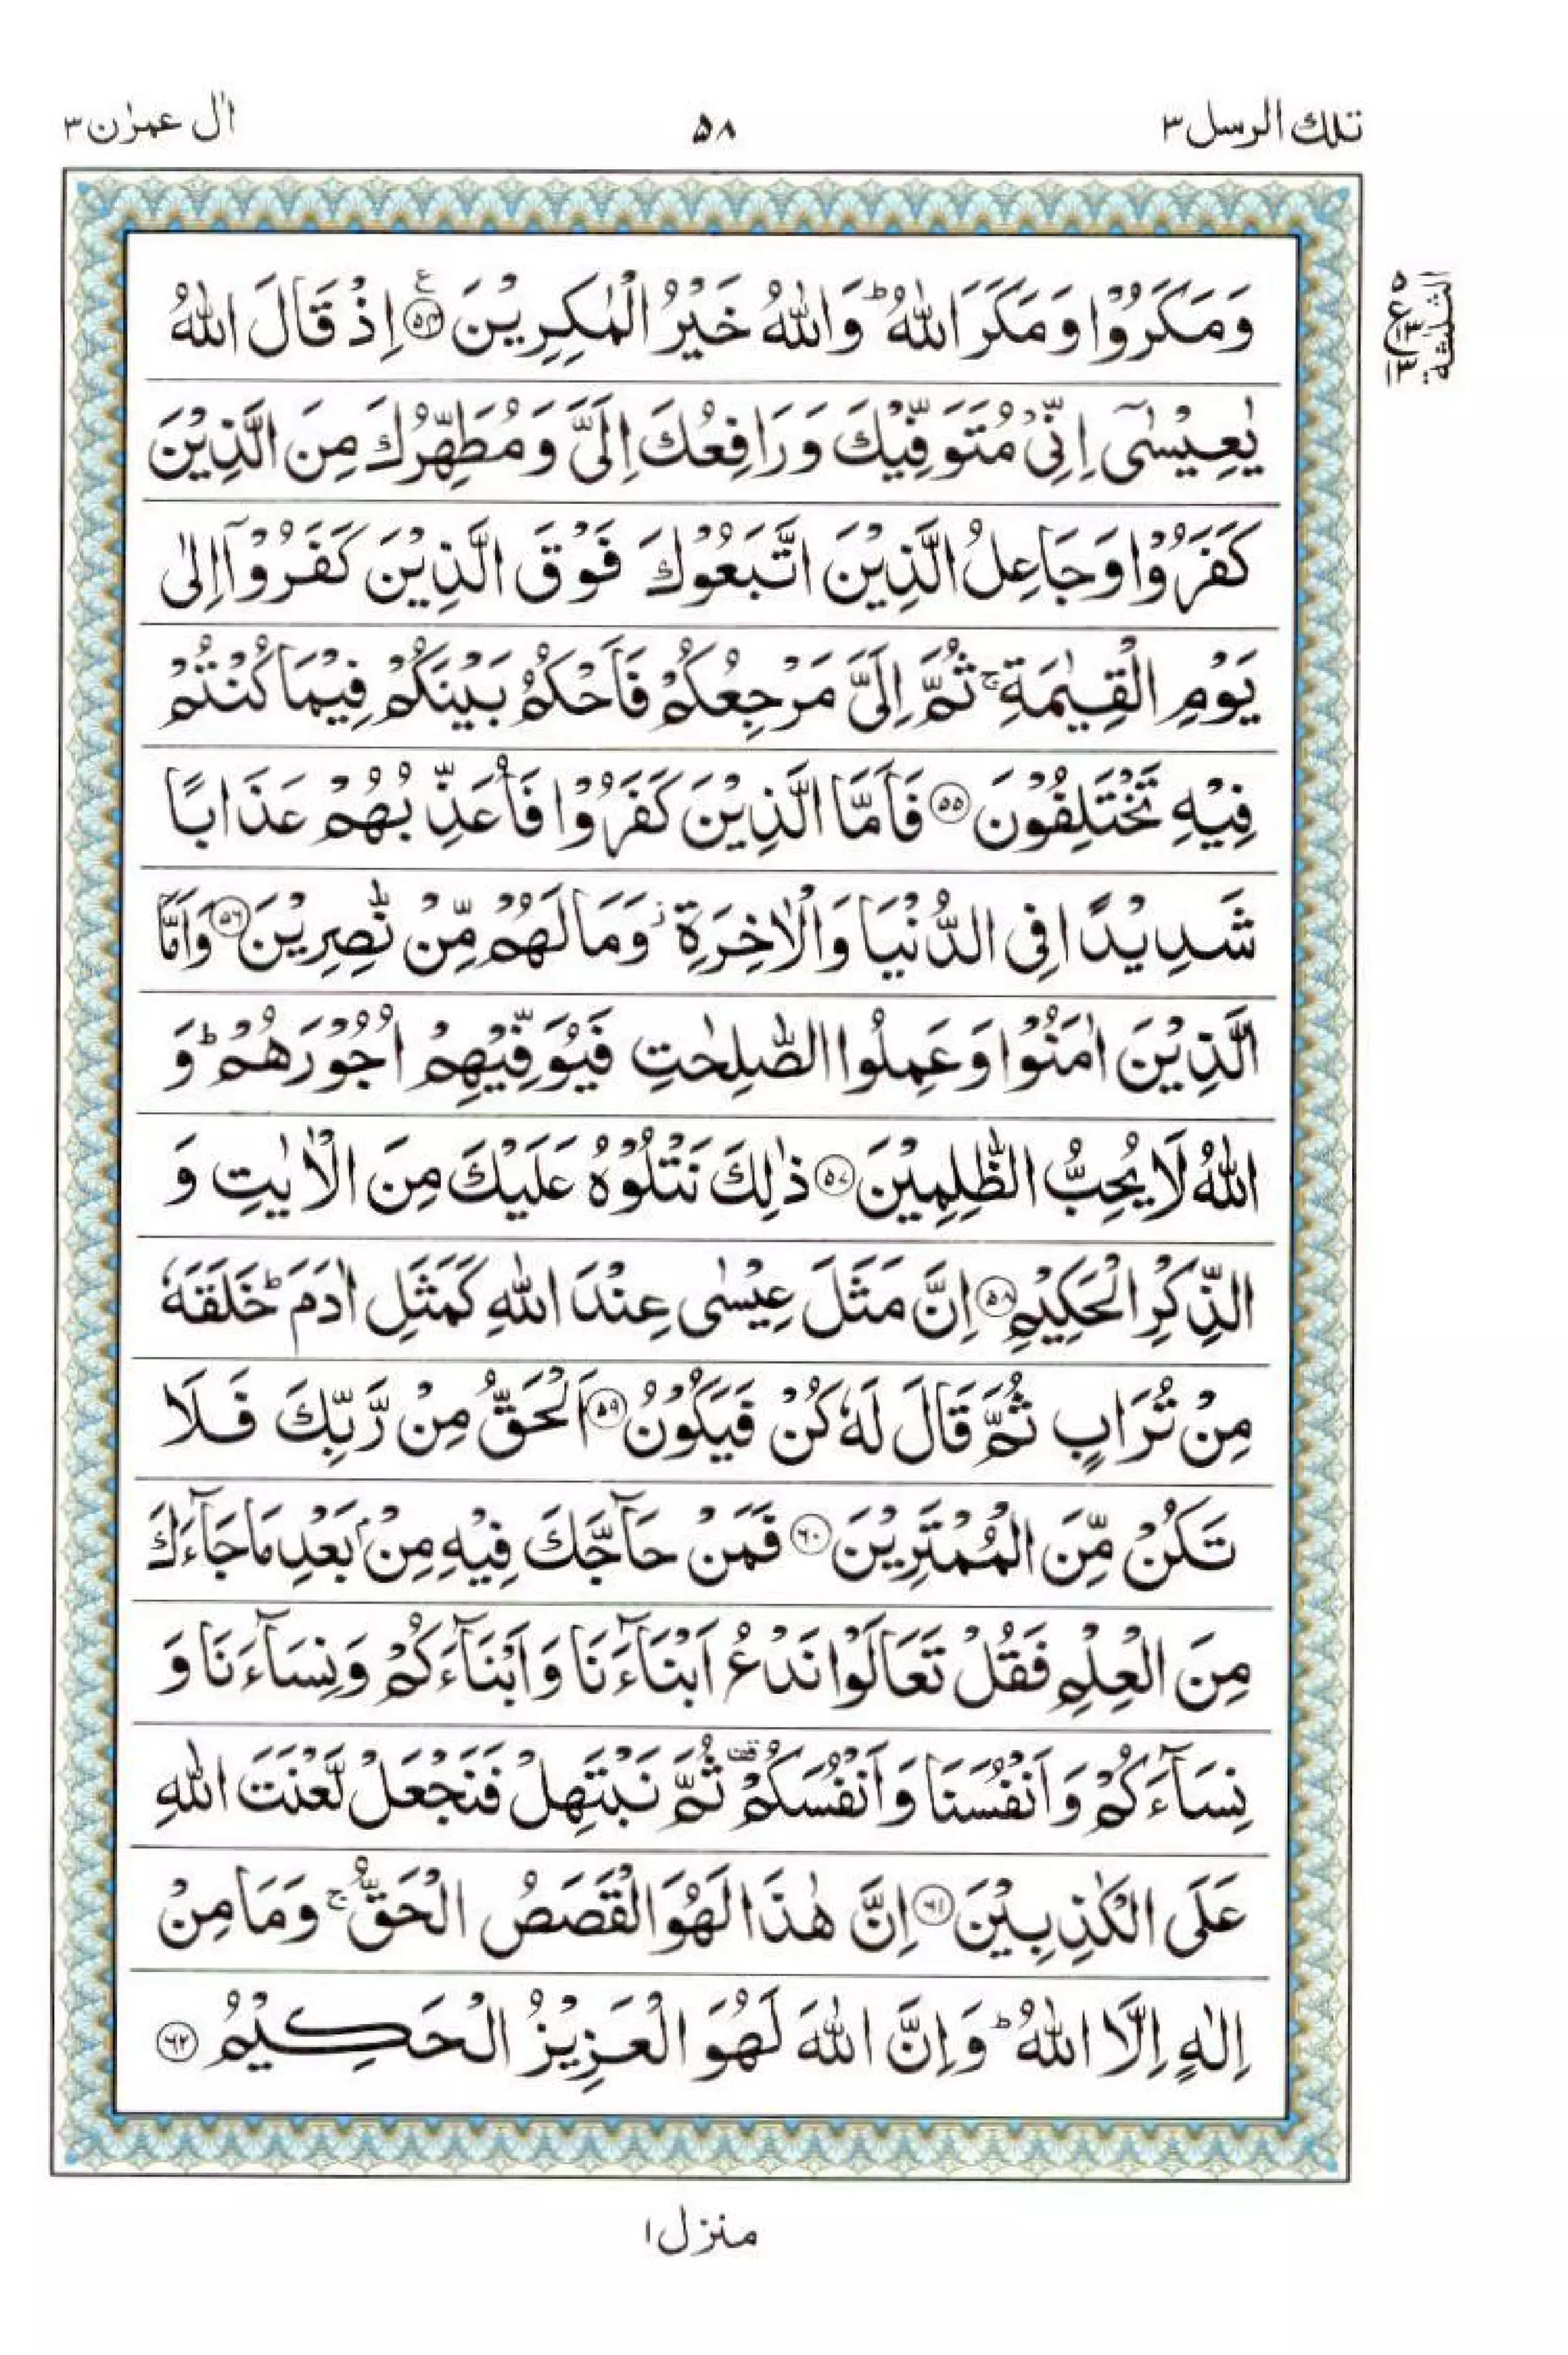 تلك الرسل ۳
۵۸
اٰل عمرٰن ۳
وَمَكَرُوْا وَمَكَرَ اللّٰهُ ؕ وَاللّٰهُ خَيْرُ الْمٰكِرِيْنَ ﴿۵۴﴾ ع اِذْ قَالَ اللّٰهُ
۵
ع
۱۳
۱۳
الثلٰثة
يٰعِيْسٰۤى اِنِّىْ مُتَوَفِّيْكَ وَرَافِعُكَ اِلَىَّ وَمُطَهِّرُكَ مِنَ الَّذِيْنَ
كَفَرُوْا وَجَاعِلُ الَّذِيْنَ اتَّبَعُوْكَ فَوْقَ الَّذِيْنَ كَفَرُوْۤا اِلٰى
يَوْمِ الْقِيٰمَةِ ۚ ثُمَّ اِلَىَّ مَرْجِعُكُمْ فَاَحْكُمُ بَيْنَكُمْ فِيْمَا كُنْتُمْ
فِيْهِ تَخْتَلِفُوْنَ ﴿۵۵﴾ فَاَمَّا الَّذِيْنَ كَفَرُوْا فَاُعَذِّبُهُمْ عَذَابًا
شَدِيْدًا فِى الدُّنْيَا وَالْاٰخِرَةِ ز وَمَا لَهُمْ مِّنْ نّٰصِرِيْنَ ﴿۵۶﴾ وَاَمَّا
الَّذِيْنَ اٰمَنُوْا وَعَمِلُوا الصّٰلِحٰتِ فَيُوَفِّيْهِمْ اُجُوْرَهُمْ ؕ وَ
اللّٰهُ لَا يُحِبُّ الظّٰلِمِيْنَ ﴿۵۷﴾ ذٰلِكَ نَتْلُوْهُ عَلَيْكَ مِنَ الْاٰيٰتِ وَ
الذِّكْرِ الْحَكِيْمِ ﴿۵۸﴾ اِنَّ مَثَلَ عِيْسٰى عِنْدَ اللّٰهِ كَمَثَلِ اٰدَمَ ؕ خَلَقَهٗ
مِنْ تُرَابٍ ثُمَّ قَالَ لَهٗ كُنْ فَيَكُوْنُ ﴿۵۹﴾ اَلْحَقُّ مِنْ رَّبِّكَ فَلَا
تَكُنْ مِّنَ الْمُمْتَرِيْنَ ﴿۶۰﴾ فَمَنْ حَآجَّكَ فِيْهِ مِنْۢ بَعْدِ مَا جَآءَكَ
مِنَ الْعِلْمِ فَقُلْ تَعَالَوْا نَدْعُ اَبْنَآءَنَا وَاَبْنَآءَكُمْ وَنِسَآءَنَا وَ
نِسَآءَكُمْ وَاَنْفُسَنَا وَاَنْفُسَكُمْ قف ثُمَّ نَبْتَهِلْ فَنَجْعَلْ لَّعْنَتَ اللّٰهِ
عَلَى الْكٰذِبِيْنَ ﴿۶۱﴾ اِنَّ هٰذَا لَهُوَ الْقَصَصُ الْحَقُّ ۚ وَمَا مِنْ
اِلٰهٍ اِلَّا اللّٰهُ ؕ وَاِنَّ اللّٰهَ لَهُوَ الْعَزِيْزُ الْحَكِيْمُ ﴿۶۲﴾
منزل ۱